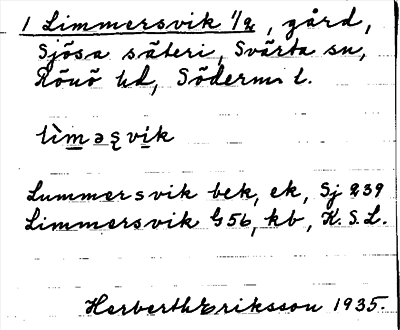 1 Limmersvik 1/2, gård,
Sjösa säteri, Svärta sn,
Rönö hd, Söderm. l.
lìməʂvik
Lummersvik bek, ek, Sj 239
Limmersvik G56, kb, K.S.L.
Herberth Eriksson 1935.